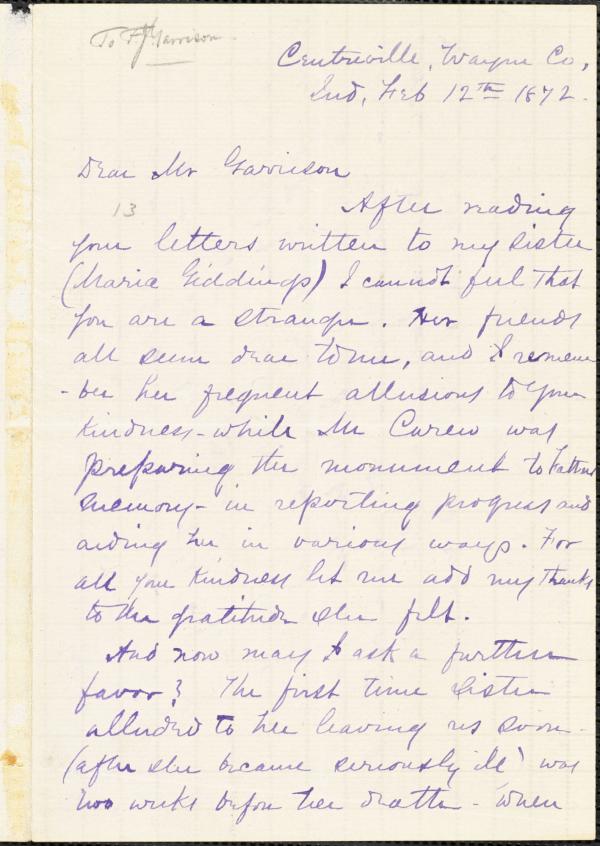 To F J Garrison
Centreville, Wayne Co,
Ind, Feb 12th 1872.
Dear Mr Garrison
13
After reading
your letters written to my sister
(Maria Giddings) I cannot feel that
you are a stranger. Her friends
all seem dear to me, and I remem
-ber her frequent allusions to your
kindness - while Mr Carew was
preparing the monument to Fathers
memory - in reporting progress and
aiding her in various ways. For
all your kindness let me add my thanks
to the gratitude she felt.
And now may I ask a further
favor? The first time Sister
alluded to her leaving us soon -
(after she became seriously ill) was
two weeks before her death - when